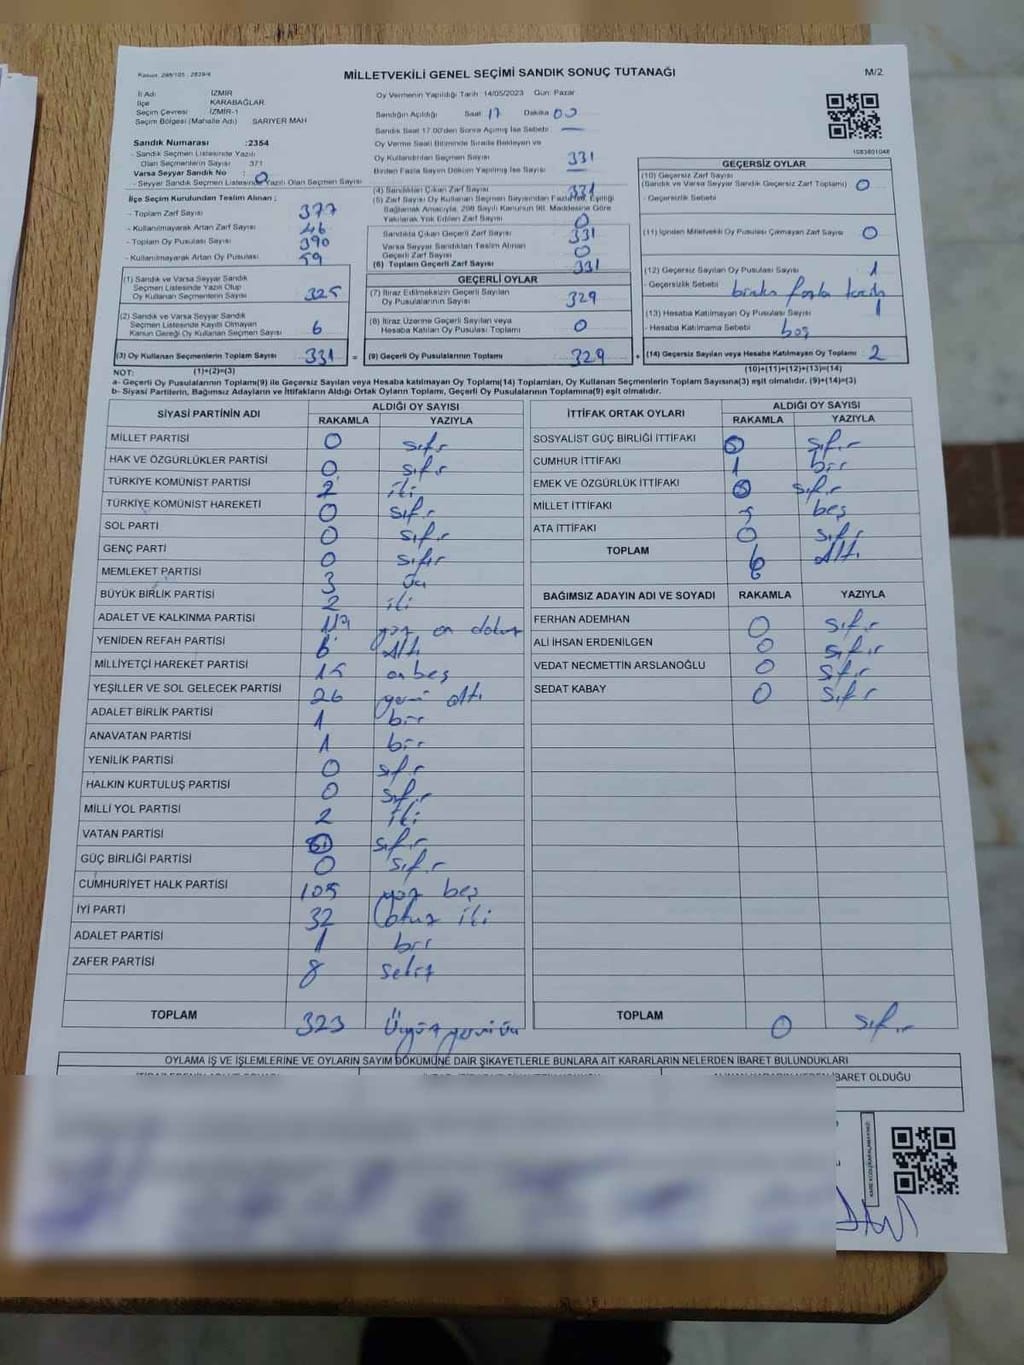 Kanun: 298/105 - 2839/4
MİLLETVEKİLİ GENEL SEÇİMİ SANDIK SONUÇ TUTANAĞI
M/2
İl Adı İZMİR
İlçe KARABAĞLAR
Seçim Çevresi İZMİR-1
Seçim Bölgesi (Mahalle Adı) SARIYER MAH
Sandık Numarası :2354
- Sandık Seçmen Listesinde Yazılı
Olan Seçmenlerin Sayısı 371
Varsa Seyyar Sandık No : 0
- Seyyar Sandık Seçmen Listesinde Yazılı Olan Seçmen Sayısı
İlçe Seçim Kurulundan Teslim Alınan ;
- Toplam Zarf Sayısı 377
- Kullanılmayarak Artan Zarf Sayısı 46
- Toplam Oy Pusulası Sayısı 390
- Kullanılmayarak Artan Oy Pusulası Sayısı 59
(1) Sandık ve Varsa Seyyar Sandık
Seçmen Listesinde Yazılı Olup
Oy Kullanan Seçmenlerin Sayısı 325
(2) Sandık ve Varsa Seyyar Sandık
Seçmen Listesinde Kayıtlı Olmayan
Kanun Gereği Oy Kullanan Seçmen Sayısı 6
(3) Oy Kullanan Seçmenlerin Toplam Sayısı 331 =
Oy Vermenin Yapıldığı Tarih: 14/05/2023 Gün: Pazar
Sandığın Açıldığı Saat 17 Dakika 00
Sandık Saat 17.00'den Sonra Açılmış İse Sebebi —
Oy Verme Saati Bitiminde Sırada Bekleyen ve
Oy Kullandırılan Seçmen Sayısı 331
Birden Fazla Sayım Döküm Yapılmış İse Sayısı —
(4) Sandıktan Çıkan Zarf Sayısı 331
(5) Zarf Sayısı Oy Kullanan Seçmen Sayısından Fazla İse, Eşitliği
Sağlamak Amacıyla, 298 Sayılı Kanunun 98. Maddesine Göre
Yakılarak Yok Edilen Zarf Sayısı 0
Sandıkta Çıkan Geçerli Zarf Sayısı 331
Varsa Seyyar Sandıktan Teslim Alınan
Geçerli Zarf Sayısı 0
(6) Toplam Geçerli Zarf Sayısı 331
GEÇERLİ OYLAR
(7) İtiraz Edilmeksizin Geçerli Sayılan
Oy Pusulalarının Sayısı 329
(8) İtiraz Üzerine Geçerli Sayılan veya
Hesaba Katılan Oy Pusulası Toplamı 0
(9) Geçerli Oy Pusulalarının Toplamı 329 +
1083801048
GEÇERSİZ OYLAR
(10) Geçersiz Zarf Sayısı
(Sandık ve Varsa Seyyar Sandık Geçersiz Zarf Toplamı) 0
- Geçersizlik Sebebi
(11) İçinden Milletvekili Oy Pusulası Çıkmayan Zarf Sayısı 0
(12) Geçersiz Sayılan Oy Pusulası Sayısı 1
- Geçersizlik Sebebi birden fazla tercih
(13) Hesaba Katılmayan Oy Pusulası Sayısı 1
- Hesaba Katılmama Sebebi boş
(14) Geçersiz Sayılan veya Hesaba Katılmayan Oy Toplamı 2
NOT: (1)+(2)=(3) (10)+(11)+(12)+(13)=(14)
a- Geçerli Oy Pusulalarının Toplamı(9) ile Geçersiz Sayılan veya Hesaba katılmayan Oy Toplamı(14) Toplamları, Oy Kullanan Seçmenlerin Toplam Sayısına(3) eşit olmalıdır. (9)+(14)=(3)
b- Siyasi Partilerin, Bağımsız Adayların ve İttifakların Aldığı Ortak Oyların Toplamı, Geçerli Oy Pusulalarının Toplamına(9) eşit olmalıdır.
SİYASİ PARTİNİN ADI ALDIĞI OY SAYISI
RAKAMLA YAZIYLA
MİLLET PARTİSİ 0 sıfır
HAK VE ÖZGÜRLÜKLER PARTİSİ 0 sıfır
TÜRKİYE KOMÜNİST PARTİSİ 2 iki
TÜRKİYE KOMÜNİST HAREKETİ 0 sıfır
SOL PARTİ 0 sıfır
GENÇ PARTİ 0 sıfır
MEMLEKET PARTİSİ 3 üç
BÜYÜK BİRLİK PARTİSİ 2 iki
ADALET VE KALKINMA PARTİSİ 119 yüz on dokuz
YENİDEN REFAH PARTİSİ 6 Altı
MİLLİYETÇİ HAREKET PARTİSİ 15 onbeş
YEŞİLLER VE SOL GELECEK PARTİSİ 26 yirmi altı
ADALET BİRLİK PARTİSİ 1 bir
ANAVATAN PARTİSİ 1 bir
YENİLİK PARTİSİ 0 sıfır
HALKIN KURTULUŞ PARTİSİ 0 sıfır
MİLLİ YOL PARTİSİ 2 iki
VATAN PARTİSİ 0 sıfır
GÜÇ BİRLİĞİ PARTİSİ 0 sıfır
CUMHURİYET HALK PARTİSİ 105 yüz beş
İYİ PARTİ 32 otuz iki
ADALET PARTİSİ 1 bir
ZAFER PARTİSİ 8 sekiz
TOPLAM 323 Üçyüz yirmi üç
İTTİFAK ORTAK OYLARI ALDIĞI OY SAYISI
RAKAMLA YAZIYLA
SOSYALİST GÜÇ BİRLİĞİ İTTİFAKI 0 sıfır
CUMHUR İTTİFAKI 1 bir
EMEK VE ÖZGÜRLÜK İTTİFAKI 0 sıfır
MİLLET İTTİFAKI 5 beş
ATA İTTİFAKI 0 sıfır
TOPLAM 6 Altı
BAĞIMSIZ ADAYIN ADI VE SOYADI RAKAMLA YAZIYLA
FERHAN ADEMHAN 0 sıfır
ALİ İHSAN ERDENİLGEN 0 sıfır
VEDAT NECMETTİN ARSLANOĞLU 0 sıfır
SEDAT KABAY 0 sıfır
TOPLAM 0 sıfır
OYLAMA İŞ VE İŞLEMLERİNE VE OYLARIN SAYIM DÖKÜMÜNE DAİR ŞİKAYETLERLE BUNLARA AİT KARARLARIN NELERDEN İBARET BULUNDUKLARI
İBARET OLDUĞU